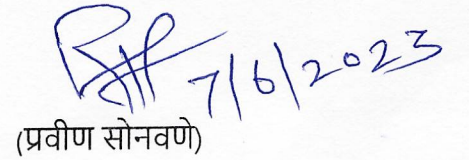 7/6/2023
(प्रवीण सोनवणे)